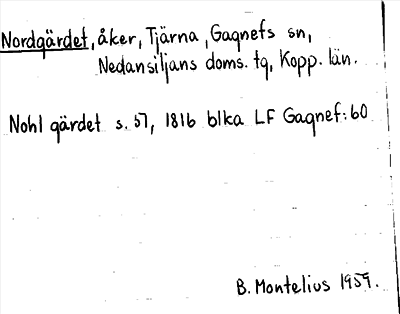 Nordgärdet, åker, Tjärna, Gagnefs sn,
Nedansiljans doms. tg, Kopp. län.
Nohl gärdet s. 57, 1816 blka LF Gagnef: 60
B. Montelius 1959.